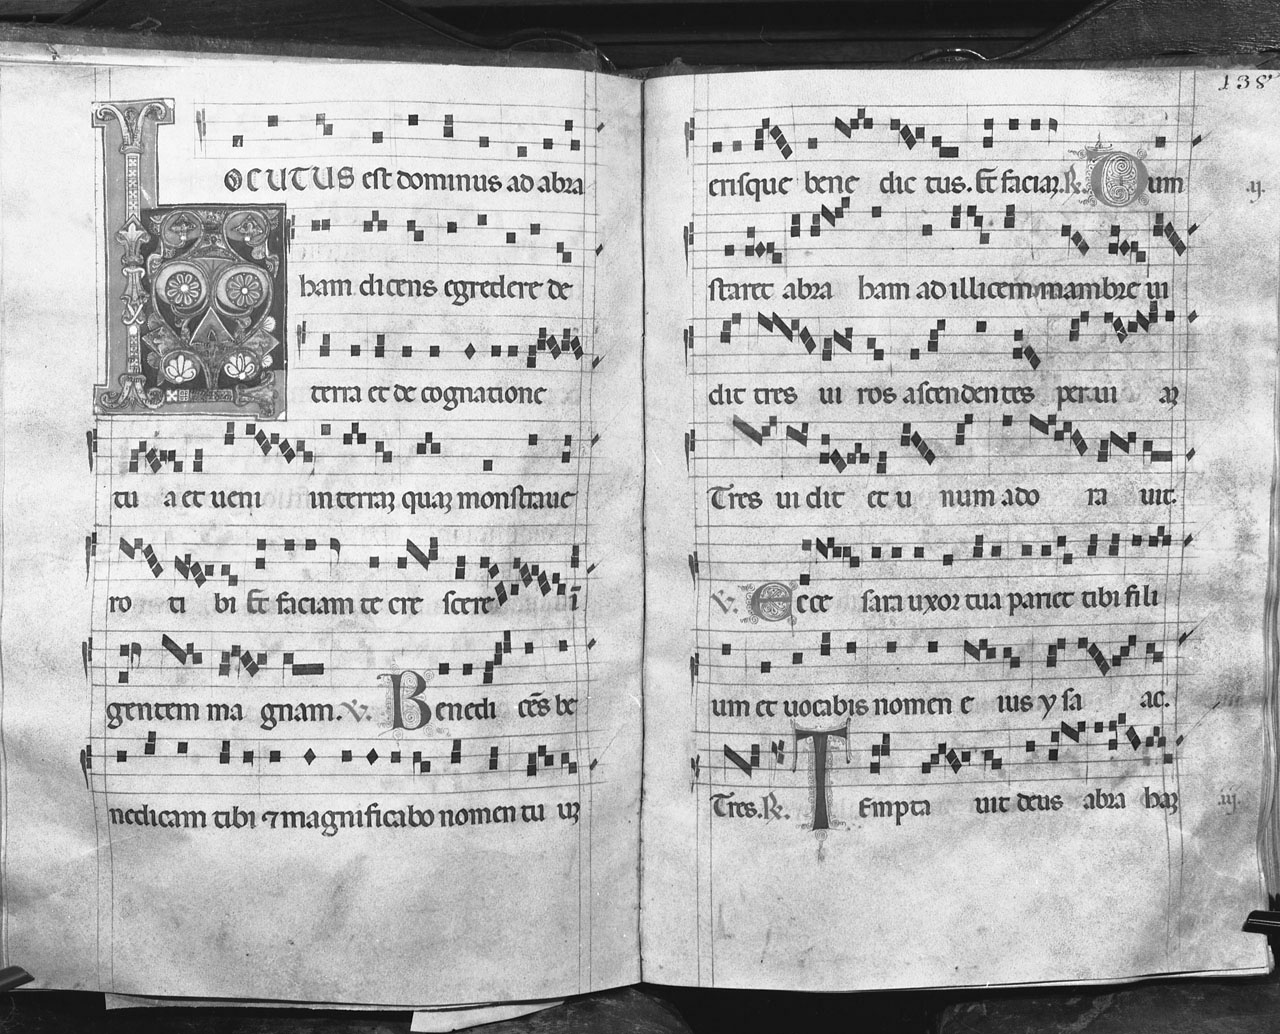 LOCUTUS est dominus ad abra
ham dicens egredere de
terra et de cognatione
tu a et ueni in terraꝫ quaꝫ monstraue
ro ti bi Et faciam te cre scere ī
gentem ma gnam. V. Benedi cēs be
nedicam tibi ⁊ magnificabo nomen tu uꝫ
138
erisque bene dic tus. Et faciaꝫ. R. Cum .ij.
staret abra ham ad illicem mambre ui
dit tres ui ros ascendentes per ui aꝫ
Tres ui dit et u num ado ra uit.
V. Ecce sara uxor tua pariet tibi fili
um et uocabis nomen e ius y sa ac.
Tres. R. Tempta uit deus abra haꝫ .iij.